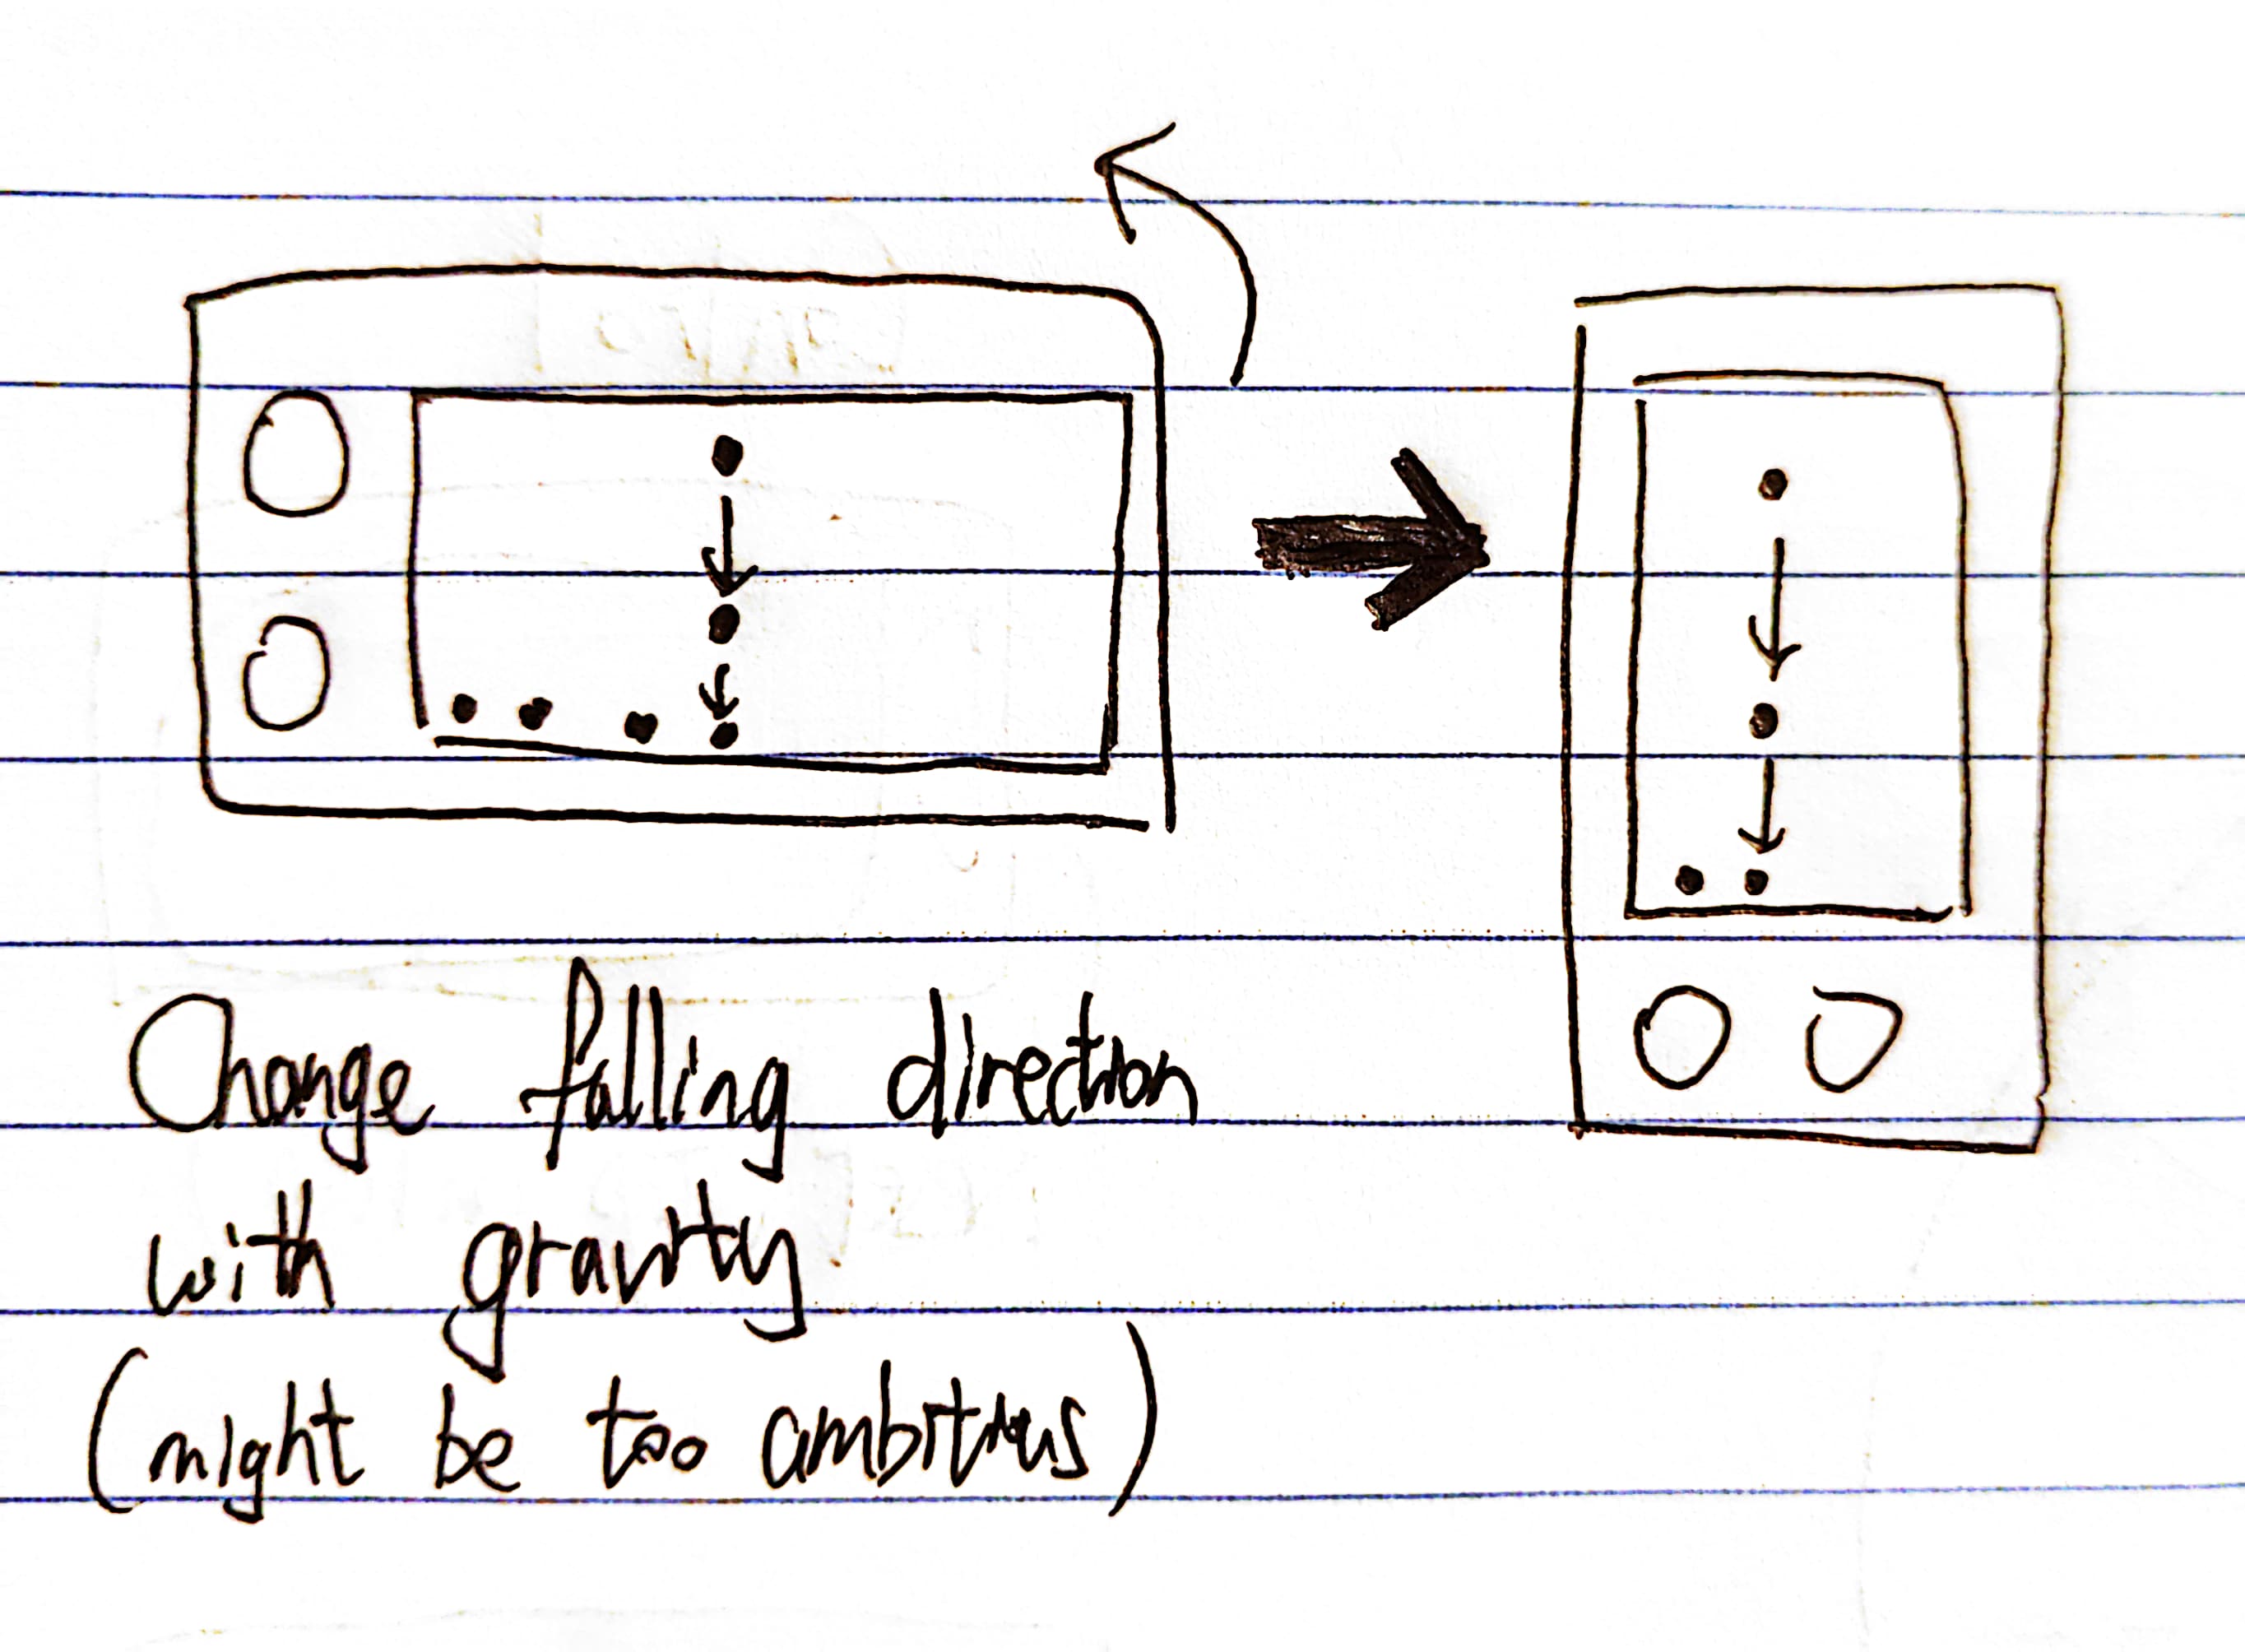 Change falling direction
with gravity
(might be too ambitious)